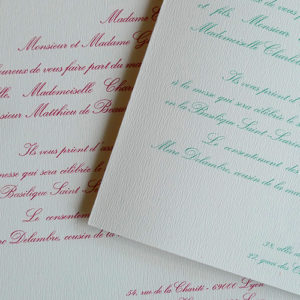 Madame
Monsieur et Madame G
heureux de vous faire part du ma
Mademoiselle Chari
Monsieur Matthieu de Beau
Ils vous prient d'ass
messe qui sera célébrée le
Basilique Saint-S
Le consentement
Marc Delambre, cousin de la
54, rue de la Charité - 69000 Lyon
et fils, Monsieur
Mademoiselle Charlott
Ils vous prient d
à la messe qui sera célébrée le
en la Basilique Saint-Savin
Le consentement des
Marc Delambre, cousin de la ma
38, allée
22, rue du